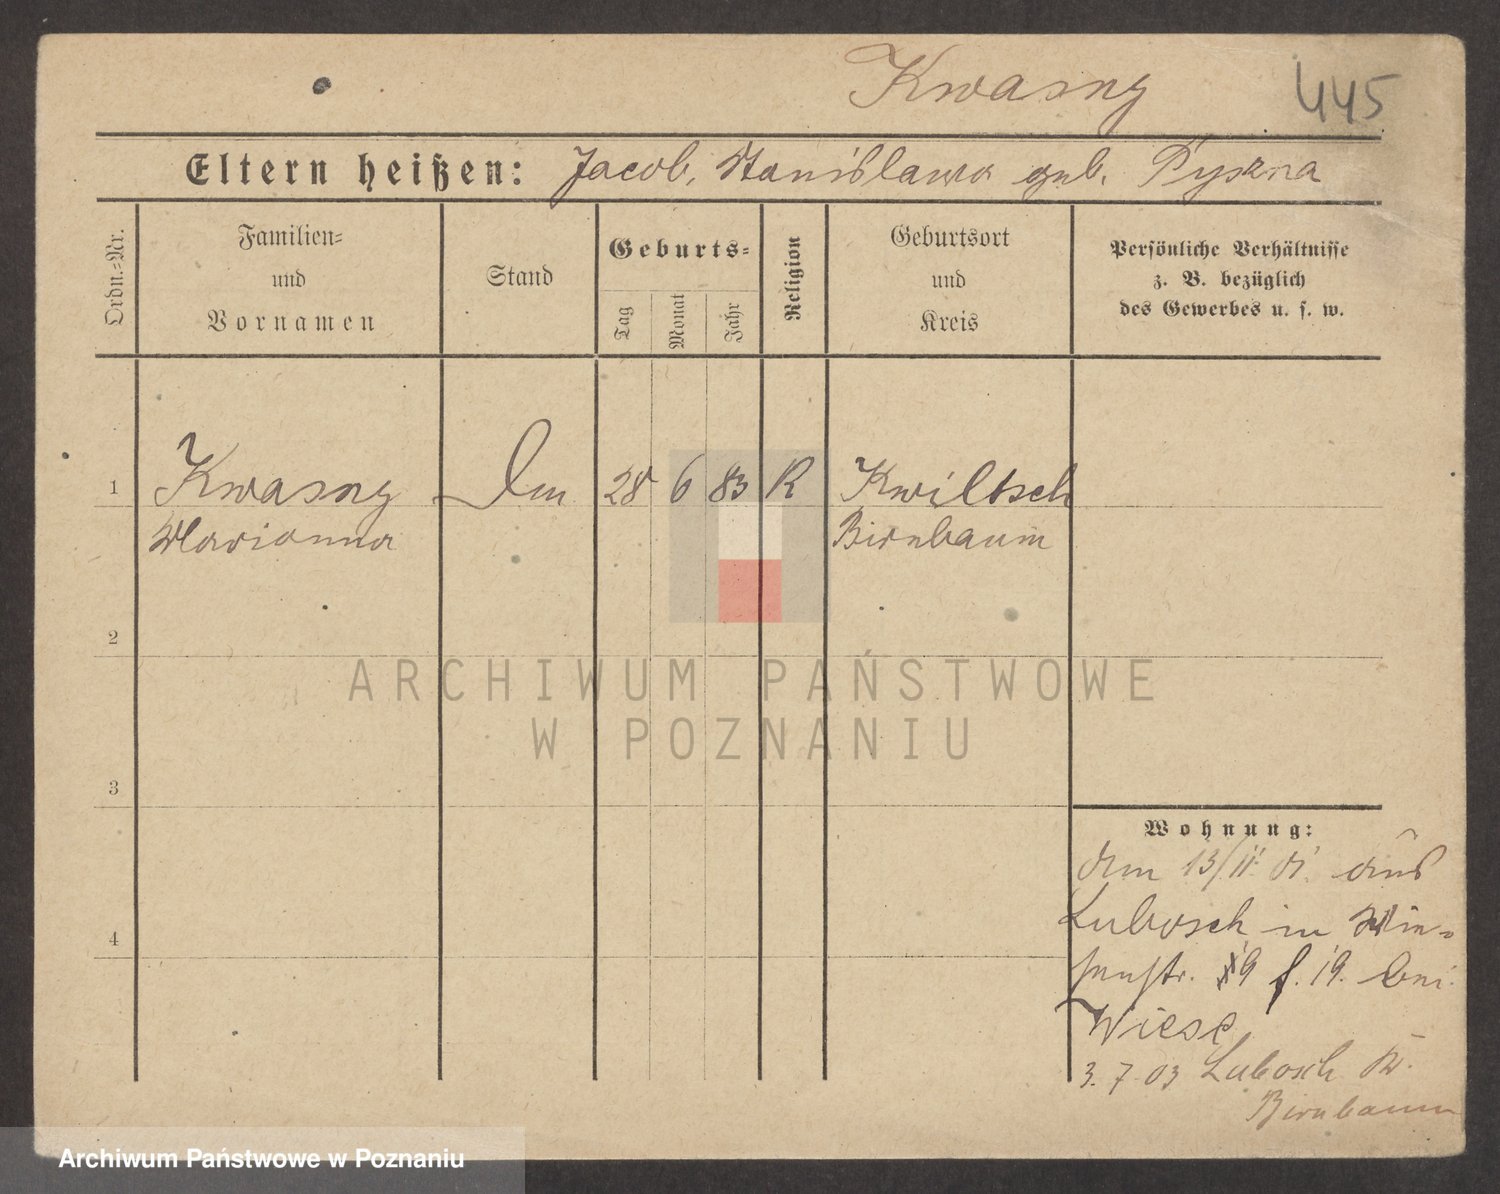 Kwasny 445
Eltern heißen: Jacob, Stanislawa geb. Pyszna
Ordn.=Nr.
Familien=
und
Vornamen
Stand
Geburts=
Tag
Monat
Jahr
Religion
Geburtsort
und
Kreis
Persönliche Verhältnisse
z. B. bezüglich
des Gewerbes u. s. w.
1 Kwasny 28 6 83 R Kwiltsch
Marianna Birnbaum
2
3
4
Wohnung:
13/11 01. aus
Lubosch in Wie-
senstr. 19. bei
Wiese
3. 7. 03 Lubosch Kr.
Birnbaum
ARCHIWUM PAŃSTWOWE
W POZNANIU
Archiwum Państwowe w Poznaniu